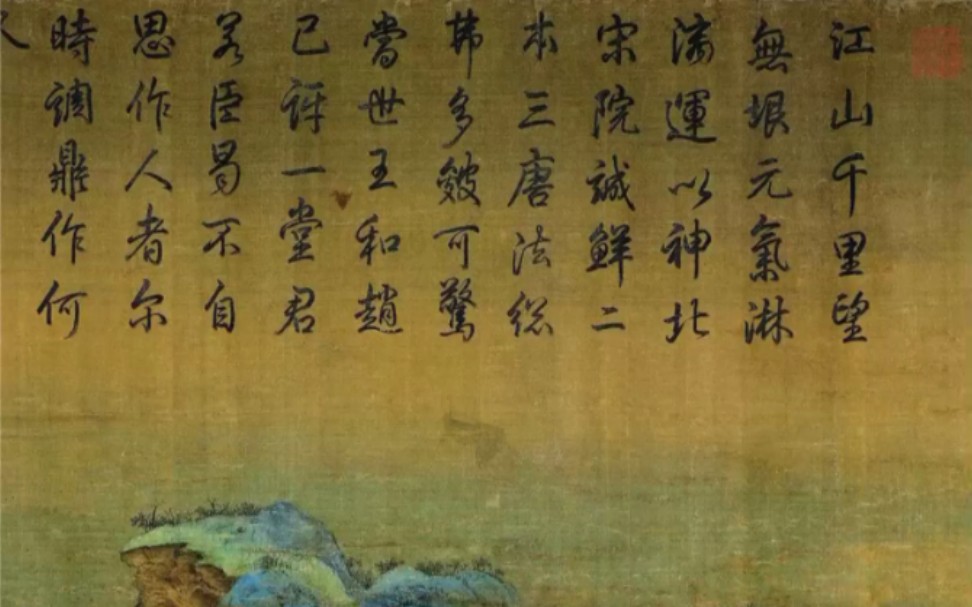 江山千里望
無垠元氣淋
漓運以神北
宋院誠鮮二
本三唐法総
弗多皴可驚
當世王和趙
已訝一堂君
若臣曷不自
思作人者尔
時調鼎作何